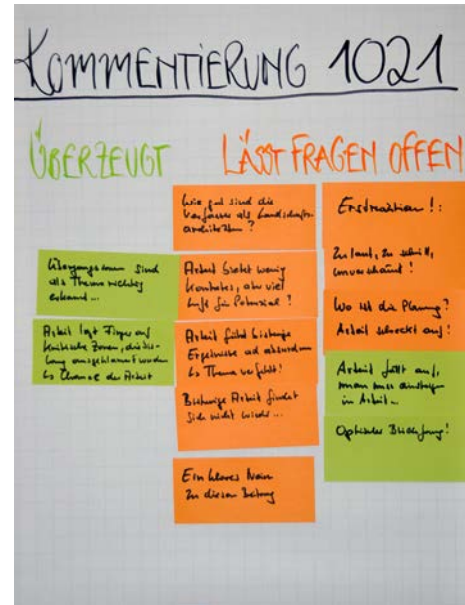 KOMMENTIERUNG 1021
ÜBERZEUGT
LÄSST FRAGEN OFFEN
Übergangszonen sind
als Thema richtig
erkannt...
Arbeit legt Finger auf
kritische Zonen, die bis-
lang ausgeklammert wurden
Chance der Arbeit
Wie gut sind die
Verfasser als Landschafts-
architekten?
Arbeit bietet wenig
Konkretes, aber viel
Luft für Potenzial!
Arbeit führt bisherige
Ergebnisse ad absurdum
Thema verfehlt!
Bisherige Arbeit findet
sich nicht wieder...
Ein klares Nein
Zu diesem Beitrag
Erstreaktion!:
Zu laut, zu schrill,
unverschämt!
Wo ist die Planung?
Arbeit schreckt auf!
Arbeit fällt auf,
man muss einsteigen
in Arbeit...
Optischer